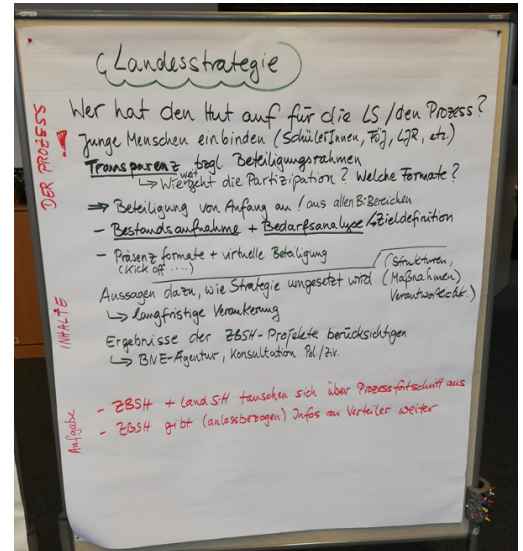 Landesstrategie
DER PROZESS
Wer hat den Hut auf für die LS / den Prozess?
! Junge Menschen einbinden (SchülerInnen, FÖJ, LJR, etc.)
Transparenz bzgl. Beteiligungsrahmen
↳ Wie weit geht die Partizipation? Welche Formate?
⇒ Beteiligung von Anfang an / aus allen B.Bereichen
- Bestandsaufnahme + Bedarfsanalyse / Zieldefinition
- Präsenzformate + virtuelle Beteiligung
(Kick off ....)
INHALTE
Aussagen dazu, wie Strategie umgesetzt wird (Strukturen, Maßnahmen,
↳ langfristige Verankerung
Ergebnisse der ZBSH-Projekte berücksichtigen
↳ BNE-Agentur, Konsultation Pol./Ziv.
Aufgabe
- ZBSH + Land SH tauschen sich über Prozessfortschritt aus
- ZBSH gibt (anlassbezogen) Infos an Verteiler weiter